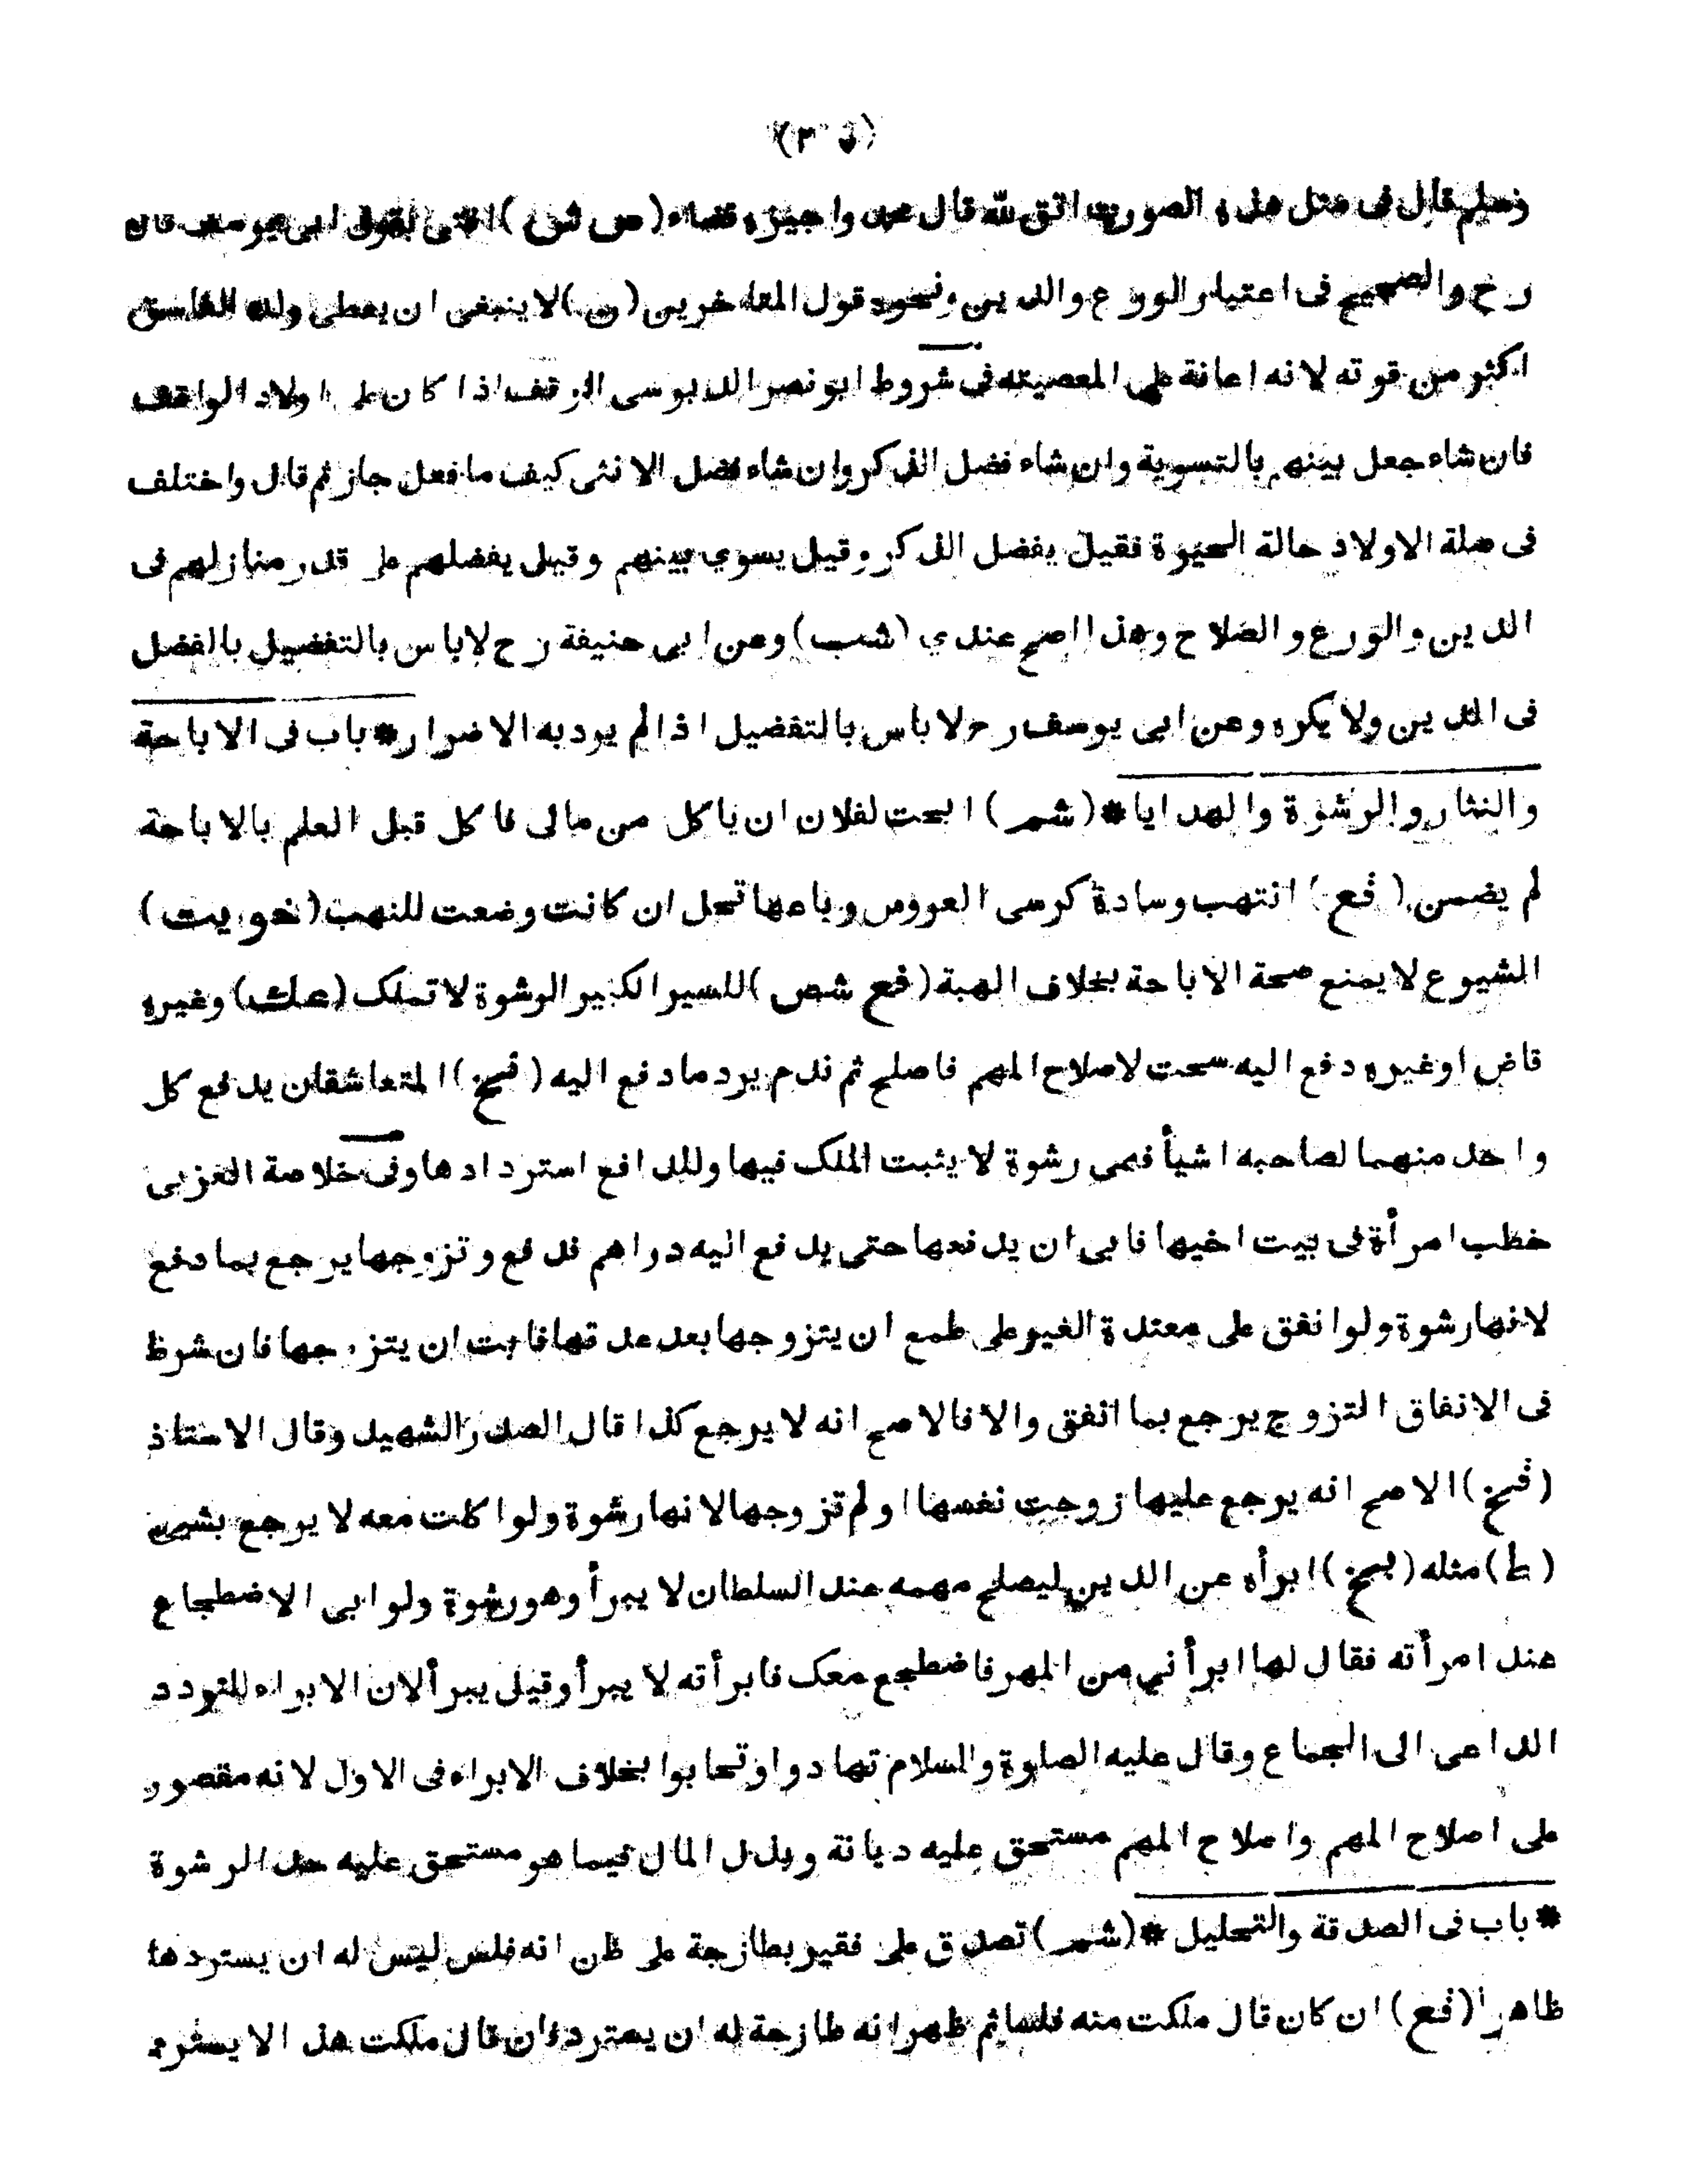 وسلم قال فى مثل هذه الصورة اتق الله قال محمد واجيزه قضاء (ص ش) افتى بقول ابى يوسف قال
رح والصحيح فى اعتبار الورع والدين ونحوه قول المتاخرين (ن) لا ينبغى ان يعطى ولده الفاسق
اكثر من قوته لانه اعانة على المعصيته فى شروط ابو نصر الدبوسى الوقف اذا كان على اولاد الواقف
فان شاء جعل بينهم بالتسوية وان شاء فضل الذكر وان شاء فضل الانثى كيف ما فعل جاز ثم قال واختلف
فى صلة الاولاد حالة الحيوة فقيل يفضل الذكر وقيل يسوي بينهم وقيل يفضلهم على قدر منازلهم فى
الدين والورع والصلاح وهذا اصح عندي (شب) وعن ابى حنيفة رح لاباس بالتفضيل بالفضل
فى الدين ولا يكره وعن ابى يوسف رح لاباس بالتفضيل اذا لم يرد به الاضرار * باب فى الاباحة
والنثار والرشوة والهدايا * (شمر) ابحت لفلان ان ياكل من مالى فاكل قبل العلم بالاباحة
لم يضمن (قع) انتهب وسادة كرسى العروس وباعها تحل ان كانت وضعت للنهب (خويت)
الشيوع لا يمنع صحة الاباحة بخلاف الهبة (قع شص) للسير الكبير الرشوة لا تملك (عك) وغيره
قاض اوغيره دفع اليه سحت لاصلاح المهم فاصلح ثم ندم يرد ما دفع اليه (قخ) المتعاشقان يدفع كل
واحد منهما لصاحبه اشيأ فهى رشوة لا يثبت الملك فيها وللدافع استردادها وفى خلاصة الغزبى
خطب امرأة فى بيت اخيها فابى ان يدفعها حتى يدفع اليه دراهم فدفع وتزوجها يرجع بما دفع
لانها رشوة ولوانفق على معتدة الغير على طمع ان يتزوجها بعد عدتها فابت ان يتزوجها فان شرط
فى الانفاق التزوج يرجع بما انفق والا فالاصح انه لا يرجع كذا قال الصدر الشهيد وقال الاستاذ
(قخ) الاصح انه يرجع عليها زوجت نفسها اولم تزوجها لانها رشوة ولو اكلت معه لا يرجع بشىء
(ط) مثله (بخ) ابرأه عن الدين ليصلح مهمه عند السلطان لا يبرأ وهو رشوة ولو ابى الاضطجاع
عند امرأته فقال لها ابرأني من المهر فاضطجع معك فابرأته لا يبرأ وقيل يبرأ لان الابراء للتودد
الداعى الى الجماع وقال عليه الصلوة والسلام تهادوا وتحابوا بخلاف الابراء فى الاول لانه مقصور
على اصلاح المهم واصلاح المهم مستحق عليه ديانة وبذل المال فيما هو مستحق عليه حد الرشوة
* باب فى الصدقة والتحليل * (شمر) تصدق على فقير بطازجة على ظن انه فلس ليس له ان يستردها
ظاهرا (قع) ان كان قال ملكت منه فلسا ثم ظهر انه طازجة له ان يسترده وان قال ملكت هذا لا يسترد